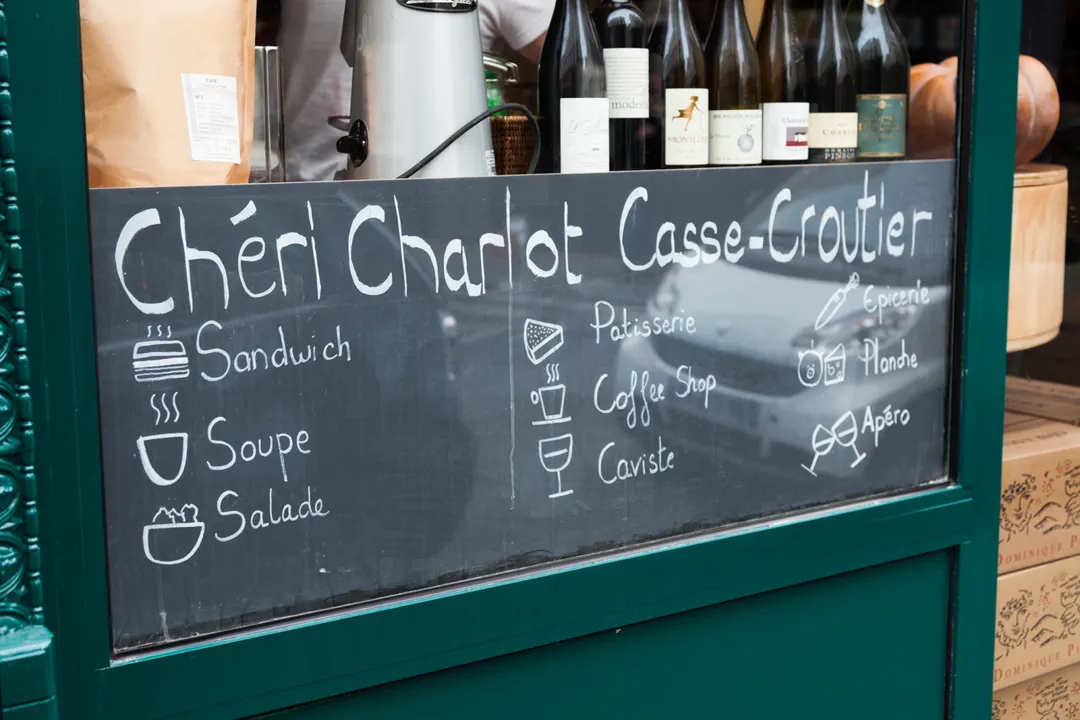 Chéri Charlot Casse-Croutier
Sandwich
Soupe
Salade
Patisserie
Coffee Shop
Caviste
Epicerie
Planche
Apéro
DOMINIQUE
DOMINIQUE